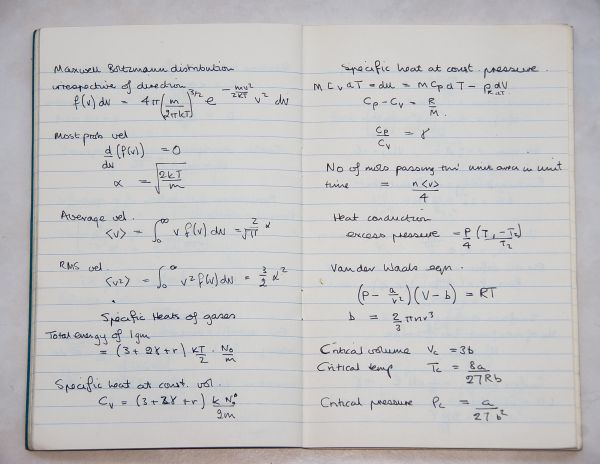 Maxwell Boltzmann distribution
irrespective of direction
f(v) dv = 4π (m/2πkT)^3/2 e^-mv²/2kT v² dv
Most prob vel
d/dv (f(v)) = 0
α = √(2kT/m)
Average vel.
<v> = ∫₀^∞ v f(v) dv = 2/√π α
RMS vel.
<v²> = ∫₀^∞ v² f(v) dv = 3/2 α²
Specific Heats of gases
Total energy of 1gm
= (3 + 2γ + r) kT/2 . N₀/m
Specific heat at const. vol.
Cv = (3 + 2γ + r) k N₀/2m
Specific heat at const. pressure.
M Cv dT = du = M Cp dT - p dV
Cp - Cv = R/M.
Cp/Cv = γ
No of mols passing thro' unit area in unit
time = n<v>/4
Heat conduction
excess pressure = P/4 (T₁ - T₂/T₂)
Van der Waals eqn.
(P - a/v²)(V - b) = RT
b = 2/3 π n r³
Critical volume Vc = 3b
Critical temp Tc = 8a/27Rb
Critical pressure Pc = a/27b²